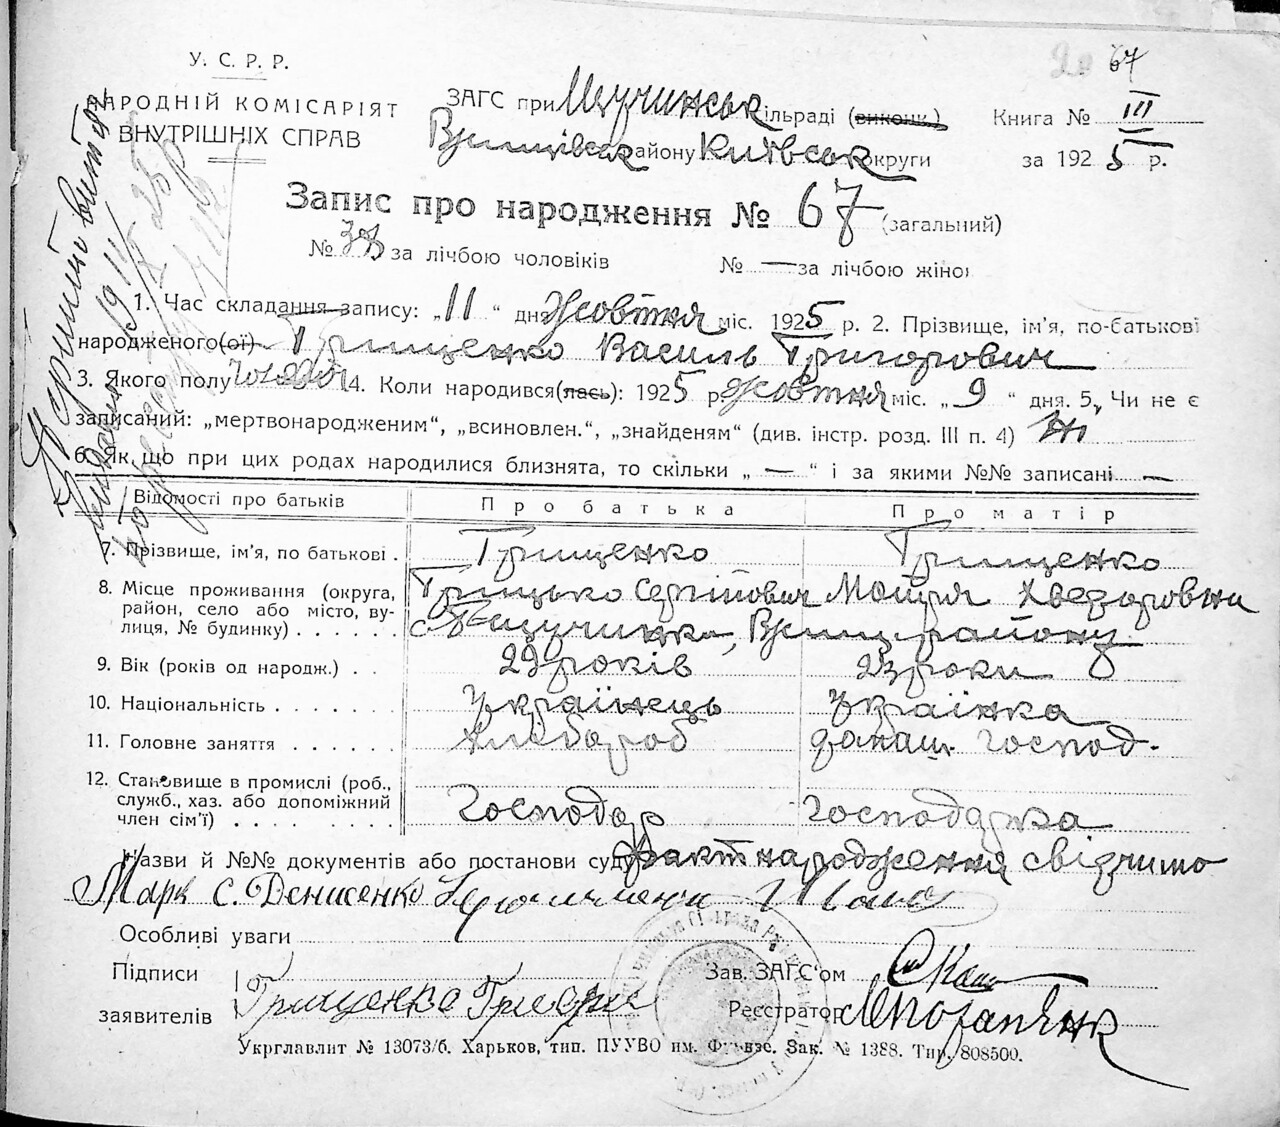 67
У. С. Р. Р.
НАРОДНІЙ КОМІСАРІЯТ
ВНУТРІШНІХ СПРАВ
ЗАГС при Щучинськ ільраді (виконк.)
району Київськ округи
Книга № III
за 1925 р.
Запис про народження № 67 (загальний)
№ за лічбою чоловіків № — за лічбою жіно
1. Час складання запису: „11“ дня Жовтня міс. 1925 р. 2. Прізвище, ім'я, по-батькові
народженого(ої) Грищенко Василь Григорович
3. Якого полу 4. Коли народився(лась): 1925 р Жовтня міс. „9“ дня. 5. Чи не є
записаний: „мертвонародженим“, „всиновлен.“, „знайденям“ (див. інстр. розд. III п. 4) Ні
6. Як що при цих родах народилися близнята, то скільки „ — “ і за якими №№ записані —
Відомості про батьків Про батька Про матір
7. Прізвище, ім'я, по батькові . Грищенко Грищенко
Грицько Сергійович Мотря Хведоровна
8. Місце проживання (округа,
район, село або місто, ву-
лиця, № будинку) . . . . . . с. Щучинка, району
9. Вік (років од народж.) . . 29 років 23 роки
10. Національність . . . . . . . Українець Українка
11. Головне заняття . . . . . . Хлібороб домаш. господ.
12. Становище в промислі (роб.,
служб., хаз. або допоміжний
член сім'ї) . . . . . . . . . Господар Господарка
Назви й №№ документів або постанови суду Факт народження свідчимо
Марк С. Денисенко
Особливі уваги
Підписи
заявителів Грищенко
Зав. ЗАГС'ом
Реєстратор
Укрглавлит № 13073/б. Харьков, тип. ПУУВО им. Фрунзе. Зак. № 1388. Тир. 808500.